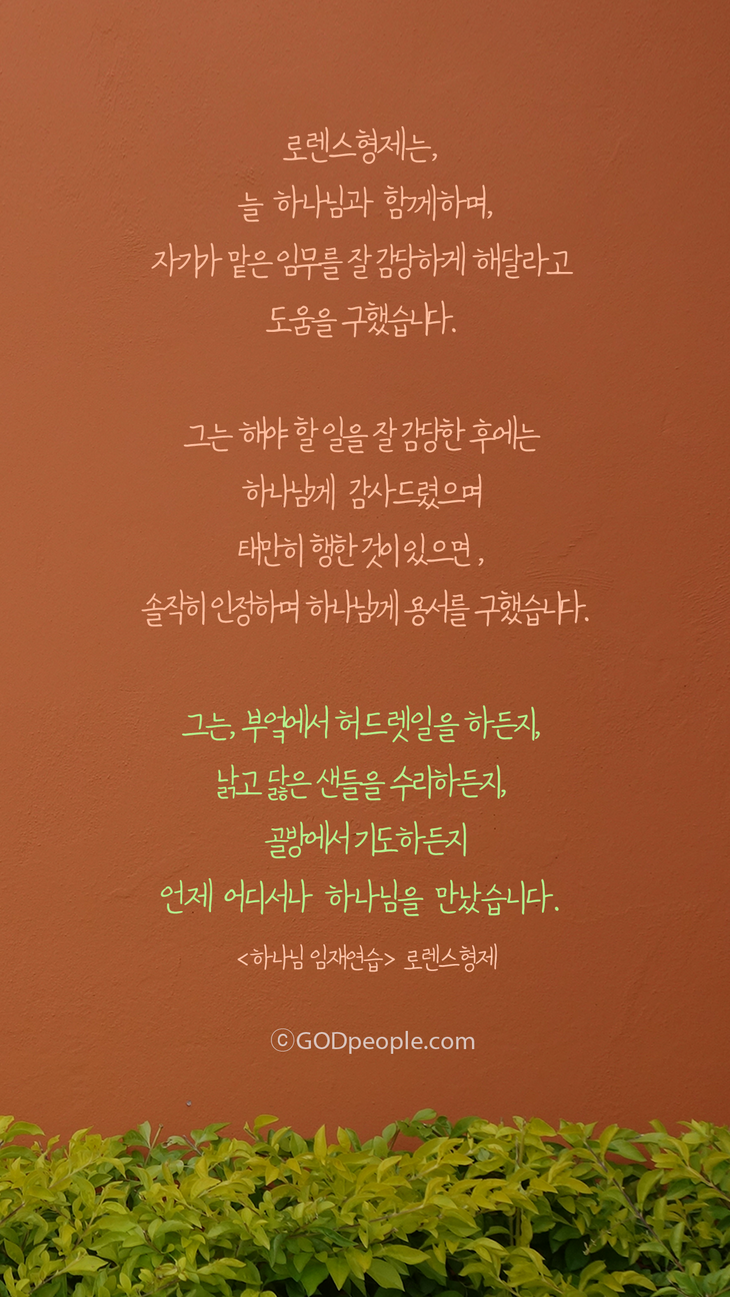 로렌스형제는,
늘 하나님과 함께하며,
자기가 맡은 임무를 잘 감당하게 해달라고
도움을 구했습니다.
그는 해야 할 일을 잘 감당한 후에는
하나님께 감사드렸으며
태만히 행한 것이 있으면,
솔직히 인정하며 하나님께 용서를 구했습니다.
그는, 부엌에서 허드렛일을 하든지,
낡고 닳은 샌들을 수리하든지,
골방에서 기도하든지
언제 어디서나 하나님을 만났습니다.
<하나님 임재연습> 로렌스형제
ⓒGODpeople.com